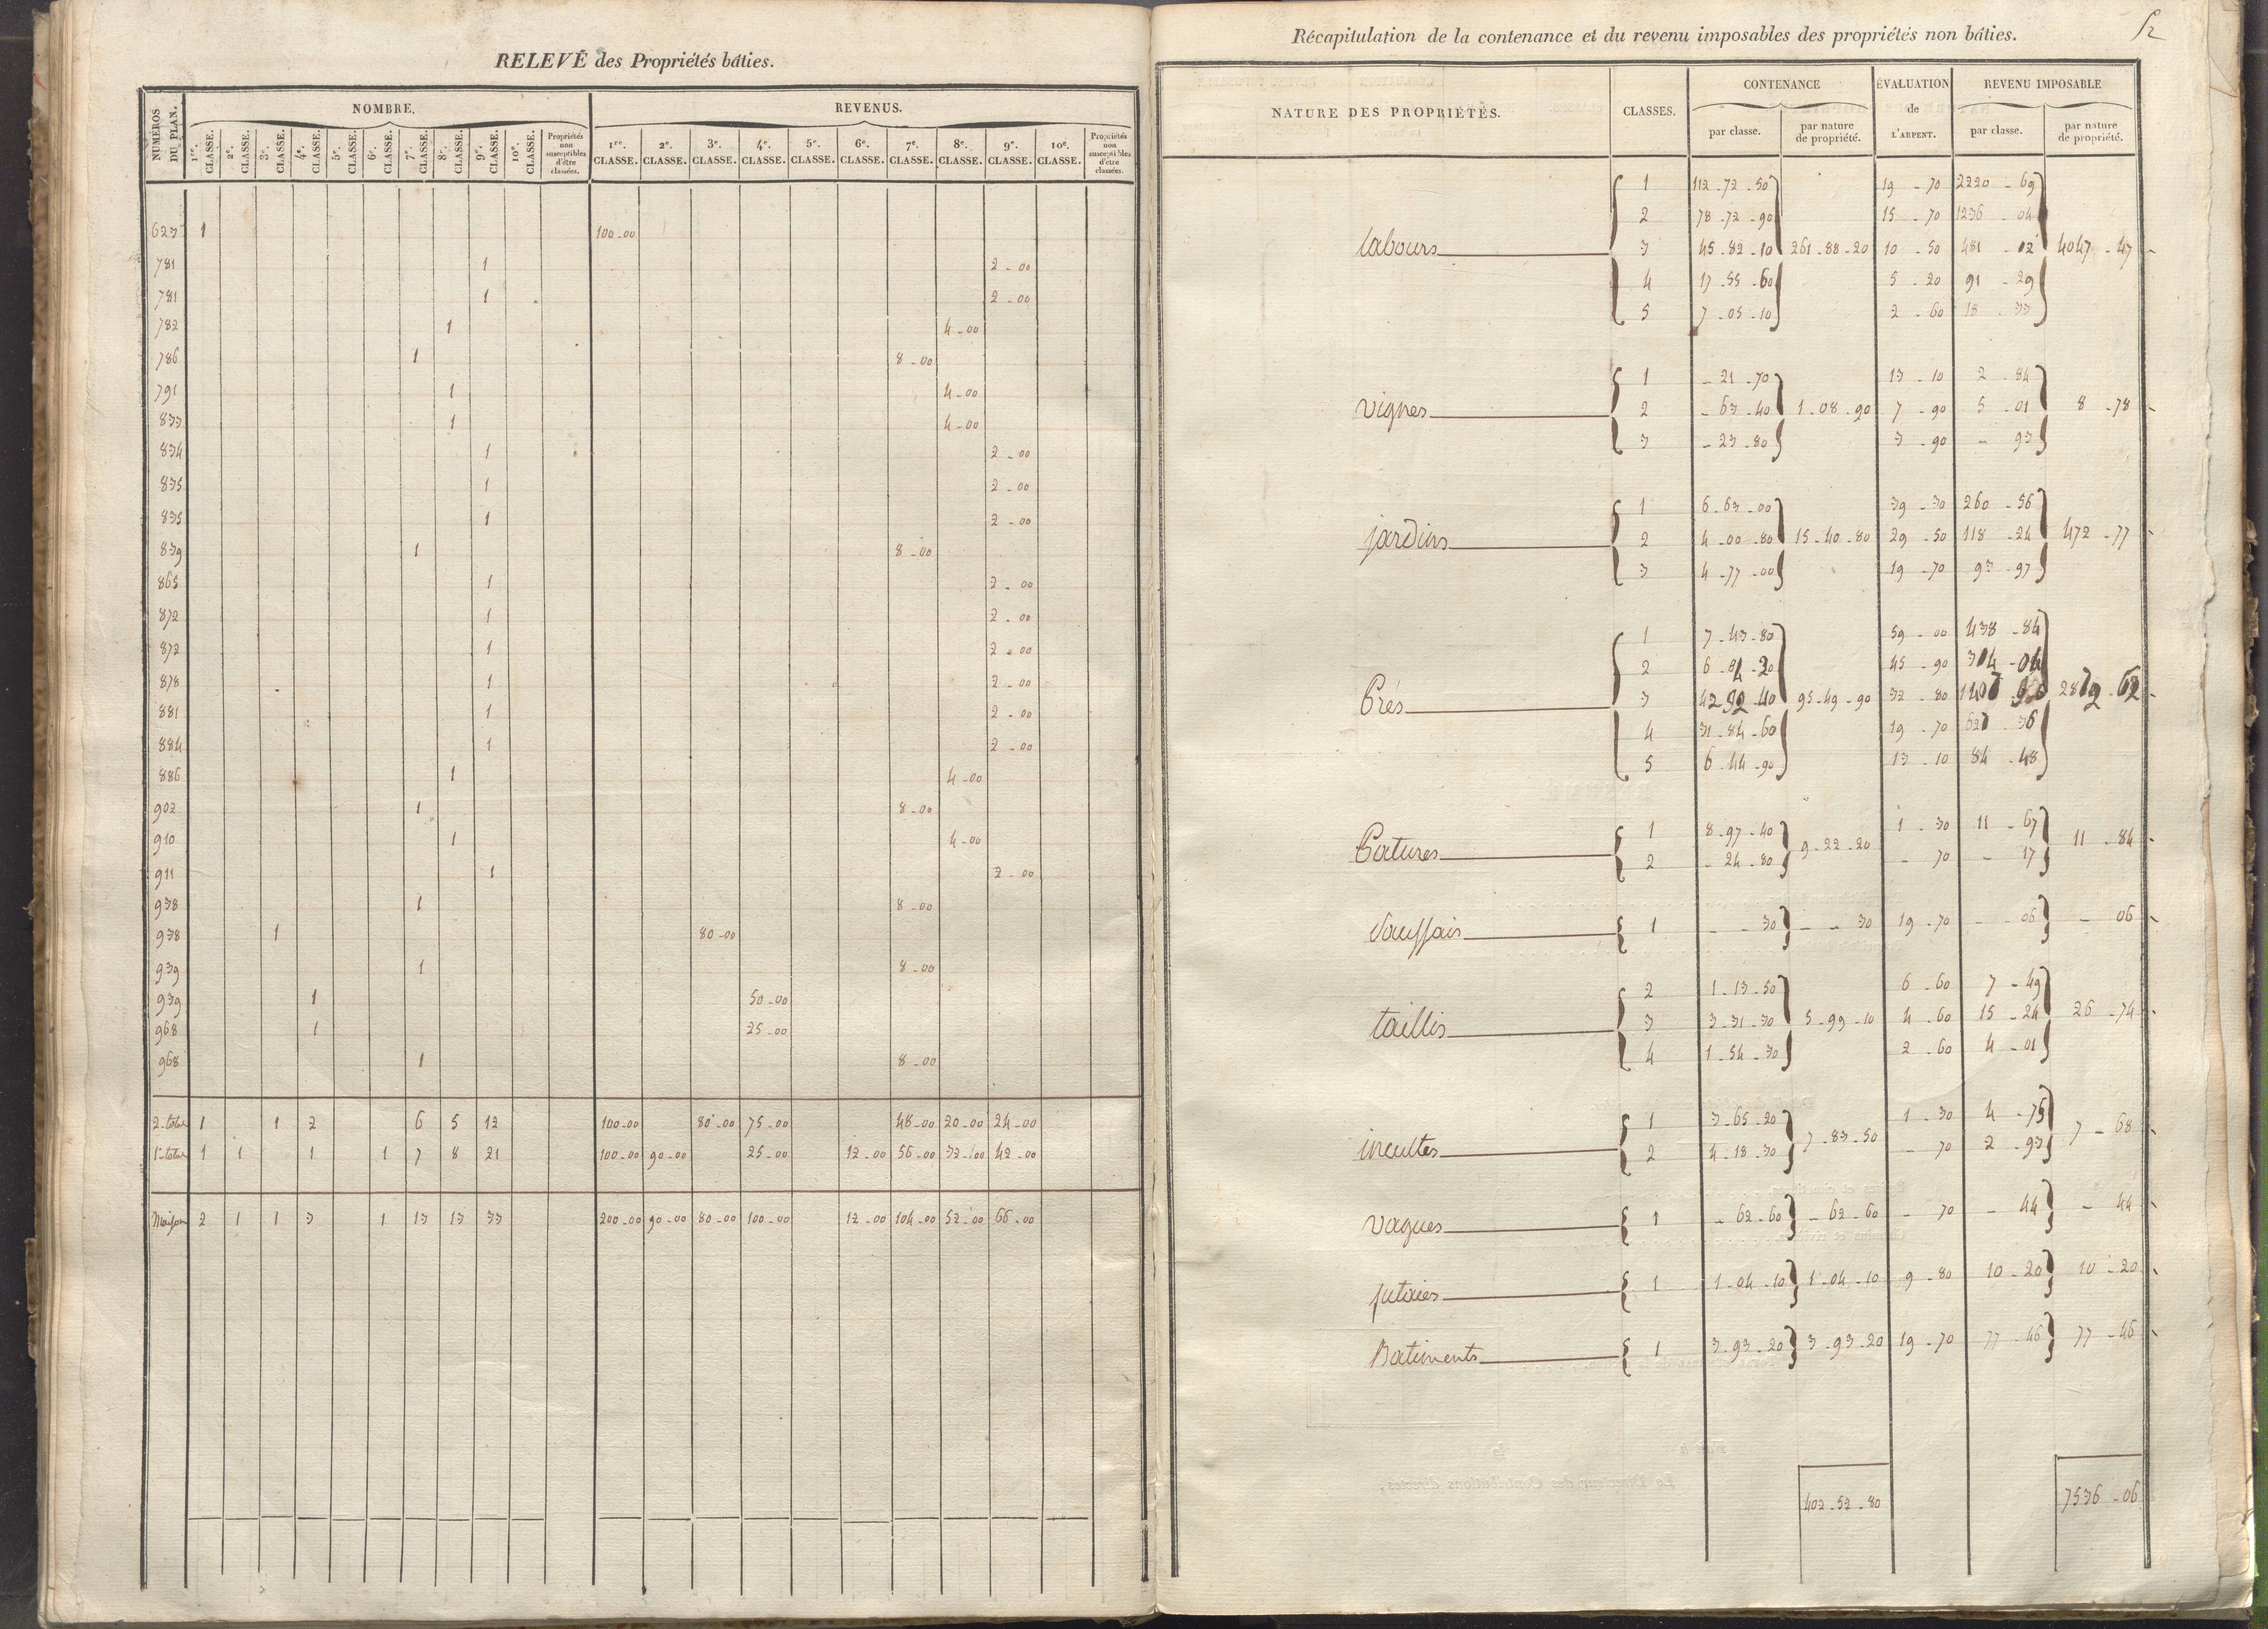 RELEVÉ des Propriétés bâties.
NUMÉROS DU PLAN. NOMBRE. REVENUS.
1re. CLASSE. 2e. CLASSE. 3e. CLASSE. 4e. CLASSE. 5e. CLASSE. 6e. CLASSE. 7e. CLASSE. 8e. CLASSE. 9e. CLASSE. 10e. CLASSE. Propriétés non susceptibles d'être classées. 1re. CLASSE. 2e. CLASSE. 3e. CLASSE. 4e. CLASSE. 5e. CLASSE. 6e. CLASSE. 7e. CLASSE. 8e. CLASSE. 9e. CLASSE. 10e. CLASSE. Propriétés non susceptibles d'être classées.
623 1 100-00
781 1 2-00
781 1 2-00
782 1 4-00
786 1 8-00
791 1 4-00
833 1 4-00
834 1 2-00
835 1 2-00
835 1 2-00
839 1 8-00
865 1 2-00
872 1 2-00
872 1 2-00
878 1 2-00
881 1 2-00
884 1 2-00
886 1 4-00
902 1 8-00
910 1 4-00
911 1 2-00
938 1 8-00
938 1 80-00
939 1 8-00
939 1 50-00
968 1 25-00
968 1 8-00
2e total 1 1 2 6 5 12 100-00 80-00 75-00 48-00 20-00 24-00
1er total 1 1 1 1 7 8 21 100-00 90-00 25-00 12-00 56-00 32-00 42-00
Maisons 2 1 1 3 1 13 13 33 200-00 90-00 80-00 100-00 12-00 104-00 52-00 66-00
52
Récapitulation de la contenance et du revenu imposables des propriétés non bâties.
NATURE DES PROPRIÉTÉS. CLASSES. CONTENANCE par classe. par nature de propriété. ÉVALUATION de L'ARPENT. REVENU IMPOSABLE par classe. par nature de propriété.
1 112-72-50 19-70 2220-69
2 78-72-90 15-70 1236-04
labours 3 45-82-10 261-88-20 10-50 481-02 4047-47
4 17-55-60 5-20 91-29
5 7-05-10 2-60 18-33
1 -21-70 13-10 2-84
vignes 2 -63-40 1-08-90 7-90 5-01 8-78
3 -23-80 3-90 -93
1 6-63-00 39-30 260-56
jardins 2 4-00-80 15-40-80 29-50 118-24 472-77
3 4-77-00 19-70 93-97
1 7-43-80 59-00 438-84
2 6-84-20 45-90 314-04
Prés 3 42-92-40 95-49-90 32-80
4 31-84-60 19-70 627-36
5 6-44-90 13-10 84-48
1 8-97-40 1-30 11-67
Patures 9-22-20 11-84
2 -24-80 -70 -17
Saussais 1 --30 --30 19-70 --06 -06
2 1-13-50 6-60 7-49
taillis 3 3-31-30 5-99-10 4-60 15-24 26-74
4 1-54-30 2-60 4-01
1 3-65-20 1-30 4-75
incultes 7-83-50 7-68
2 4-18-30 -70 2-93
vagues 1 -62-60 -62-60 -70 -44 -44
futaies 1 1-04-10 1-04-10 9-80 10-20 10-20
Batiments 1 3-93-20 3-93-20 19-70 77-46 77-46
402-52-80 7536-06